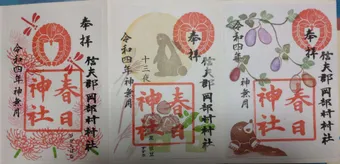 奉拝
信夫郡岡部村村社
春日神社
令和四年神無月
奉拝
信夫郡岡部村村社
十三夜
春日神社
令和四年神無月
奉拝
信夫郡岡部村村社
春日神社
令和四年神無月